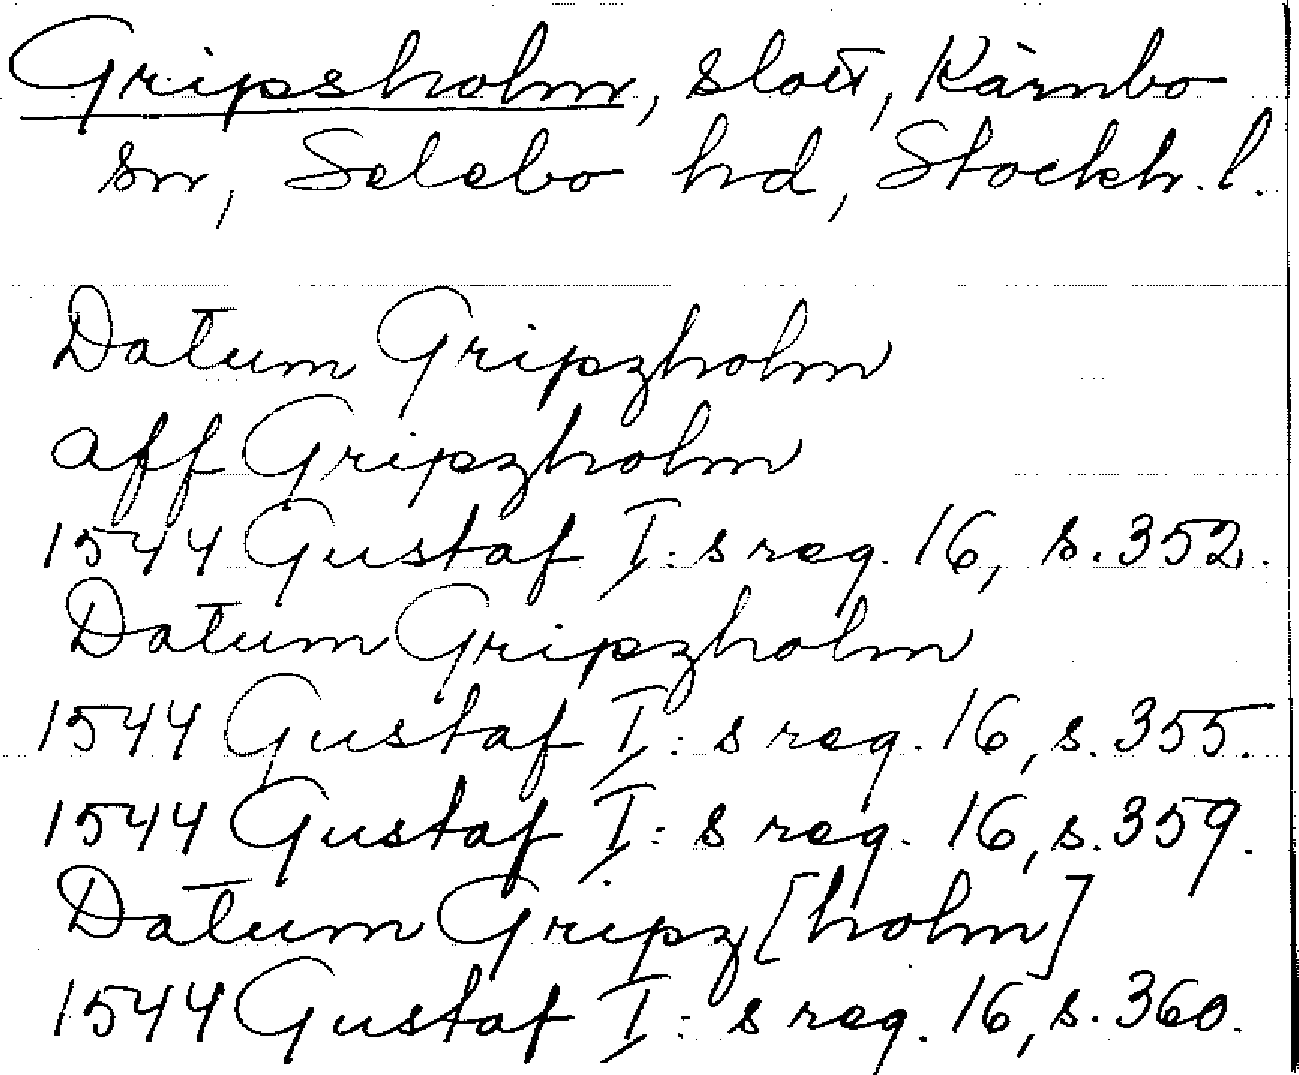 Gripsholm, slott, Kärnbo
sn, Selebo hd, Stockh. l.
Datum Gripzholm
aff Gripzholm
1544 Gustaf I:s reg. 16, s. 352.
Datum Gripzholm
1544 Gustaf I:s reg. 16, s. 355.
1544 Gustaf I:s reg. 16, s. 359.
Datum Gripz[holm]
1544 Gustaf I:s reg. 16, s. 360.